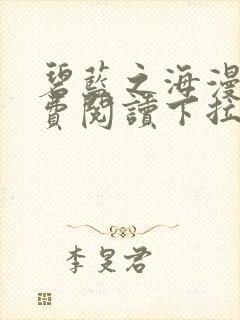 碧藍之海漫
費閱讀下拉
李旻君